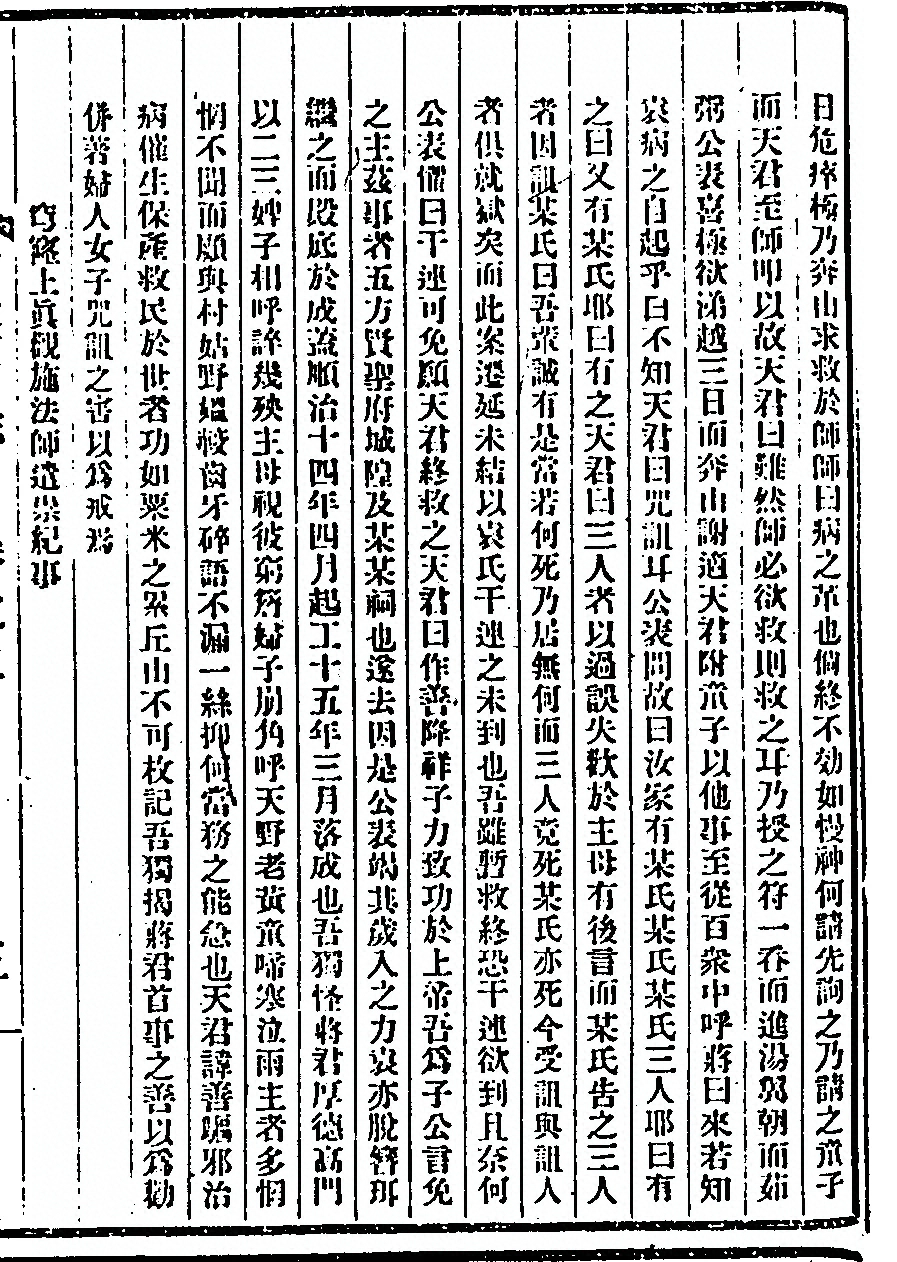 日危瘁極乃奔山求救於師師曰病之革也倘終不効如慢神何請先詢之乃請之童子
而天君至師叩以故天君曰難然師必欲救則救之耳乃授之符一吞而進湯粥朝而茹
粥公表喜極欲涕越三日而奔山謝適天君附童子以他事至從百衆中呼蔣曰來若知
袁病之自起乎曰不知天君曰咒詛耳公表問故曰汝家有某氏某氏某氏三人耶曰有
之曰又有某氏耶曰有之天君曰三人者以過誤失歡於主母有後言而某氏告之三人
者因詛某氏曰吾輩誠有是當若何死乃居無何而三人竟死某氏亦死今受詛與詛人
者俱就獄矣而此案遷延未結以袁氏干連之未到也吾雖暫救終恐干連欲到且奈何
公表懼曰干連可免願天君終救之天君曰作善降祥子力致功於上帝吾為子公言免
之主茲事者五方賢聖府城隍及某某祠也遂去因是公表竭其歲入之力袁亦脫簪珥
繼之而殿庭於成蓋順治十四年四月起工十五年三月落成也吾獨怪蔣君厚德高門
以二三婢子相呼誶幾殃主母視彼窮簷婦子崩角呼天野老黃童啼寒泣雨主者多惘
惘不聞而願與村姑野媼較齒牙碎語不漏一絲抑何當務之能急也天君諱善驅邪治
病催生保產救民於世者功如粟米之累丘山不可枚記吾獨揭蔣君首事之善以為勸
併著婦人女子咒詛之害以為戒焉
穹窿上真觀施法師遣祟紀事